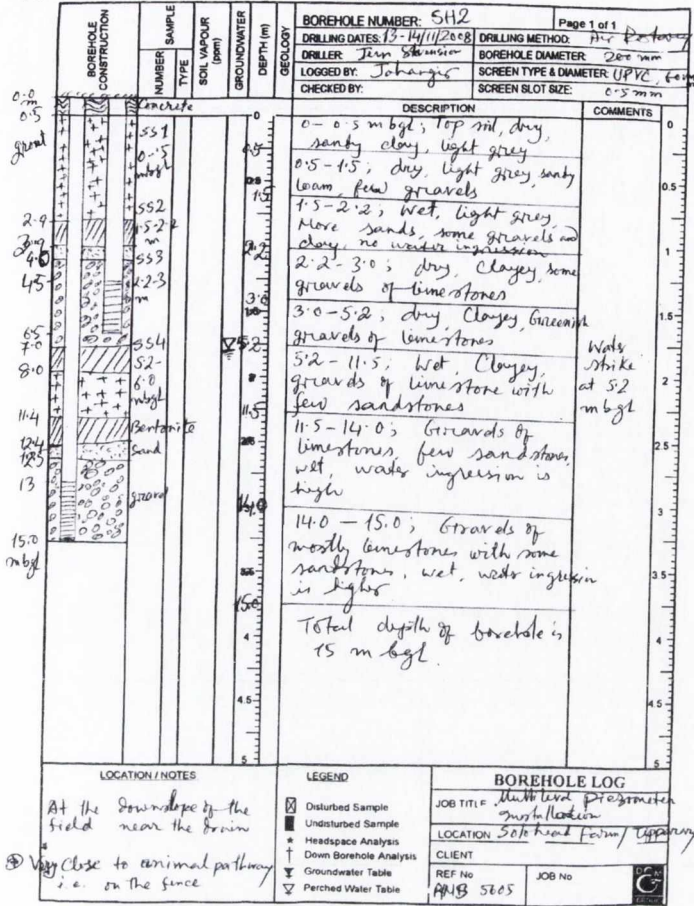 BOREHOLE NUMBER: SH2
Page 1 of 1
DRILLING DATES: 13-14/11/2008
DRILLING METHOD: Air Rotary
DRILLER:
BOREHOLE DIAMETER: 200 mm
LOGGED BY: Jahangir
SCREEN TYPE & DIAMETER: UPVC,
CHECKED BY:
SCREEN SLOT SIZE: 0.5 mm
BOREHOLE CONSTRUCTION
SAMPLE
NUMBER
TYPE
SOIL VAPOUR (ppm)
GROUNDWATER
DEPTH (m)
GEOLOGY
DESCRIPTION
COMMENTS
0.0 m
0.5
grout
2.9
4.5
6.5
7.0
8.0
11.4
12.4
12.5
13
15.0
mbgl
Concrete
SS1
0-.5
mbgl
SS2
1.5-2.2
m
SS3
2.2-3
m
SS4
5.2-
6.0
mbgl
Bentonite
Sand
gravel
0
0.5
1.5
2.2
3.0
5.2
11.5
14.0
15.0
4
4.5
5
0-0.5 mbgl; Top soil, dry,
sandy clay, light grey
0.5-1.5; dry, light grey, sandy
loam, few gravels
1.5-2.2; Wet, light grey
More sands, some gravels and
clay, no water ingression
2.2-3.0; dry, Clayey, some
gravels of limestones
3.0-5.2; dry, Clayey, Greenish
gravels of limestones
5.2-11.5; Wet, Clayey,
gravels of limestone with
few sandstones
11.5-14.0; Gravels of
limestones, few sandstones,
wet, water ingression is
high
14.0-15.0; Gravels of
mostly limestones with some
sandstones, wet, water ingression
is higher
Total depth of borehole is
15 m bgl.
Water
strike
at 5.2
m bgl
0
0.5
1
1.5
2
2.5
3
3.5
4
4.5
5
LOCATION / NOTES
At the downslope of the
field near the drain
Very Close to animal pathway
i.e. on the fence
LEGEND
Disturbed Sample
Undisturbed Sample
Headspace Analysis
Down Borehole Analysis
Groundwater Table
Perched Water Table
BOREHOLE LOG
JOB TITLE Multilevel Piezometer
installation
LOCATION Solohead Farm/ Tipperary
CLIENT
REF No
JOB No
5605